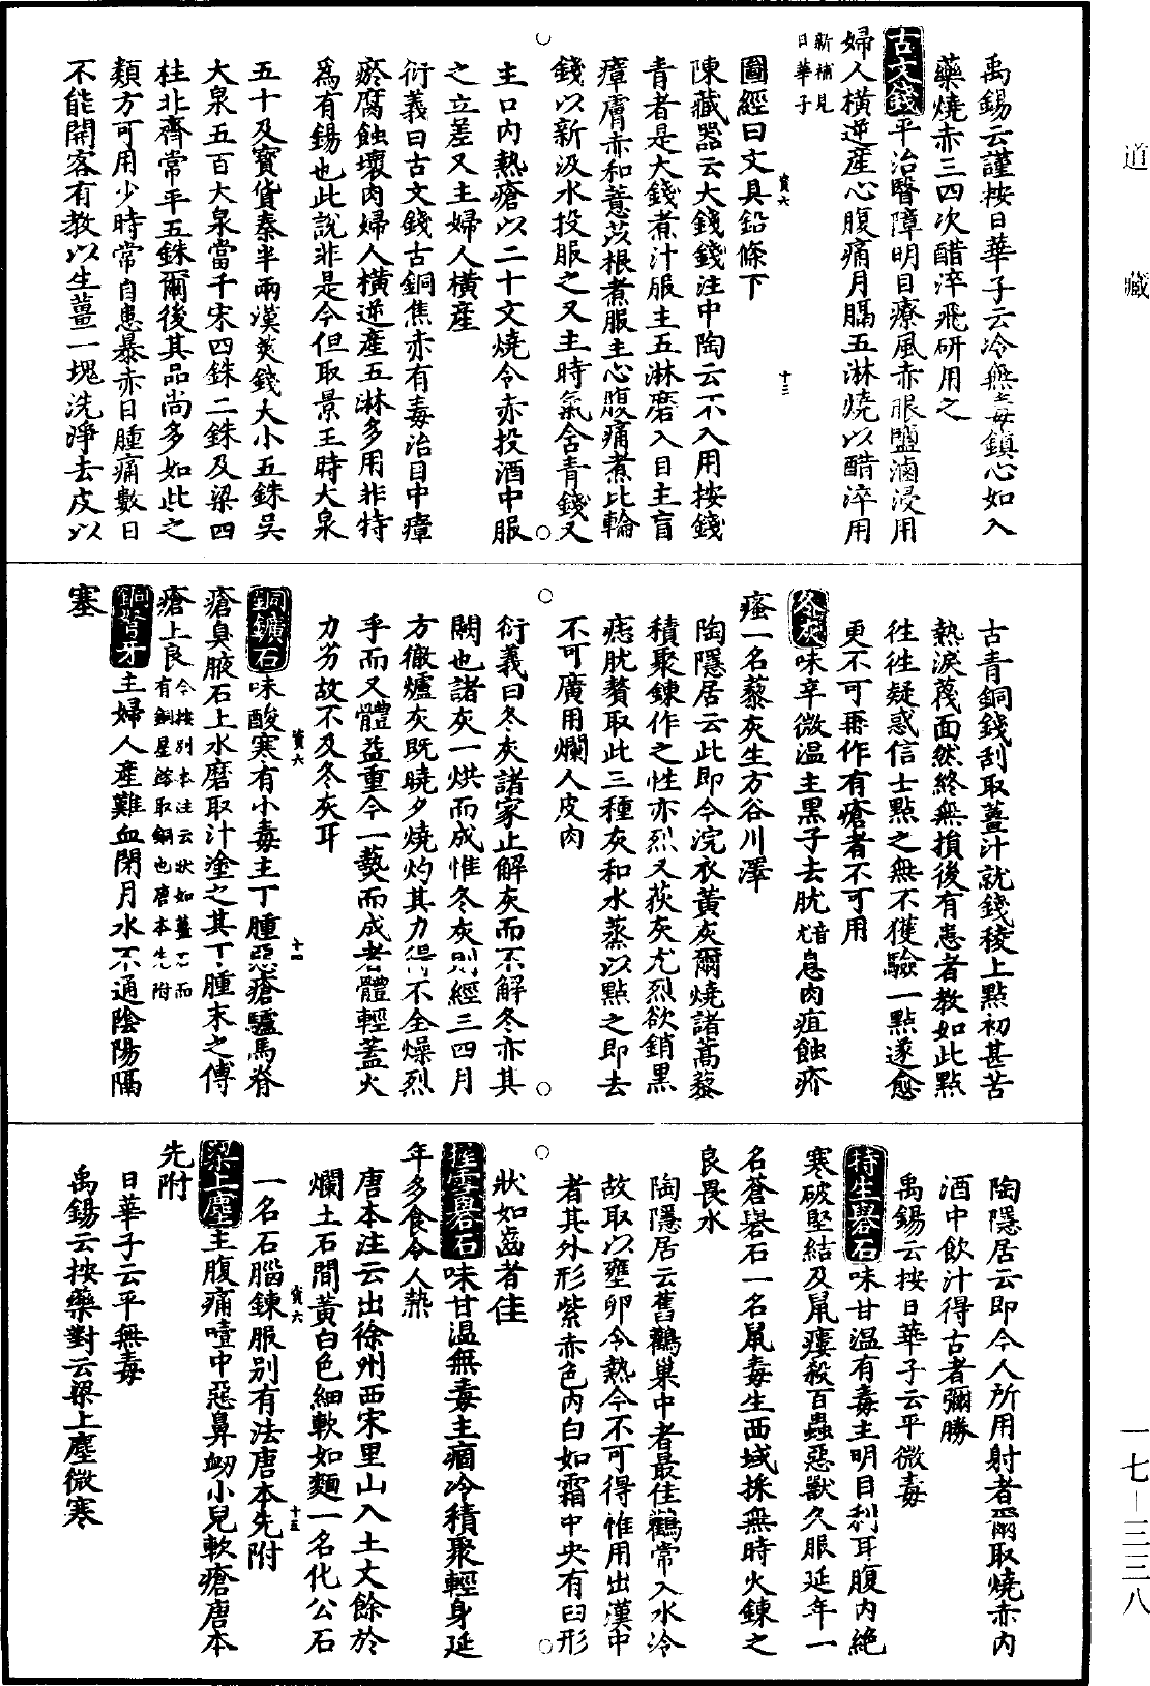 道藏
禹錫云謹按日華子云冷無毒鎮心如入
藥燒赤三四次醋淬飛研用之
古文錢平治瞖障明目療風赤眼鹽滷浸用
婦人橫逆產心腹痛月膈五淋燒以醋淬用
新補見
日華子
圖經曰文具鉛條下
寅六
十三
陳藏器云大錢錢注中陶云不入用按錢
青者是大錢煮汁服主五淋磨入目主盲
瘴膚赤和薏苡根煮服主心腹痛煮比輪
錢以新汲水投服之又主時氣含青錢又
主口內熱瘡以二十文燒令赤投酒中服
之立差又主婦人橫產
衍義曰古文錢古銅焦赤有毒治目中瘴
瘀腐蝕壞肉婦人橫逆產五淋多用非特
為有錫也此說非是今但取景王時大泉
五十及寶貨秦半兩漢莢錢大小五銖吳
大泉五百大泉當千宋四銖二銖及梁四
柱北齊常平五銖爾後其品尚多如此之
類方可用少時常自患暴赤目腫痛數日
不能開客有教以生薑一塊洗淨去皮以
古青銅錢刮取薑汁就錢稜上點初甚苦
熱淚蔑面然終無損後有患者教如此點
往往疑惑信士點之無不獲驗一點遂愈
更不可再作有瘡者不可用
冬灰味辛微溫主黑子去肬音尤息肉疽蝕疥
瘙一名藜灰生方谷川澤
陶隱居云此即今浣衣黃灰爾燒諸蒿藜
積聚鍊作之性亦烈又荻灰尤烈欲銷黑
痣肬贅取此三種灰和水蒸以點之即去
不可廣用爛人皮肉
衍義曰冬灰諸家止解灰而不解冬亦其
闕也諸灰一烘而成惟冬灰則經三四月
方徹爐灰既曉夕燒灼其力得不全燥烈
乎而又體益重今一爇而成者體輕蓋火
力劣故不及冬灰耳
銅鑛石味酸寒有小毒主丁腫惡瘡驢馬脊
寅六
十四
瘡臭腋石上水磨取汁塗之其丁腫末之傅
瘡上良今按別本注云狀如薑石而
有銅星鎔取銅也唐本先附
銅弩牙主婦人產難血閉月水不通陰陽隔
塞
陶隱居云即今人所用射者爾取燒赤內
酒中飲汁得古者彌勝
禹錫云按日華子云平微毒
特生礜石味甘溫有毒主明目利耳腹內絕
寒破堅結及鼠瘻殺百蟲惡獸久服延年一
名蒼礜石一名鼠毒生西域採無時火鍊之
良畏水
陶隱居云舊鸛巢中者最佳鸛常入水冷
故取以壅卵令熱今不可得惟用出漢中
者其外形紫赤色內白如霜中央有臼形
狀如齒者佳
握雪礜石味甘溫無毒主痼冷積聚輕身延
年多食令人熱
唐本注云出徐州西宋里山入土丈餘於
爛土石間黃白色細軟如麵一名化公石
一名石腦鍊服別有法唐本先附
寅六
十五
梁上塵主腹痛噎中惡鼻衂小兒軟瘡唐本
先附
日華子云平無毒
禹錫云按藥對云梁上塵微寒
一七—三三八